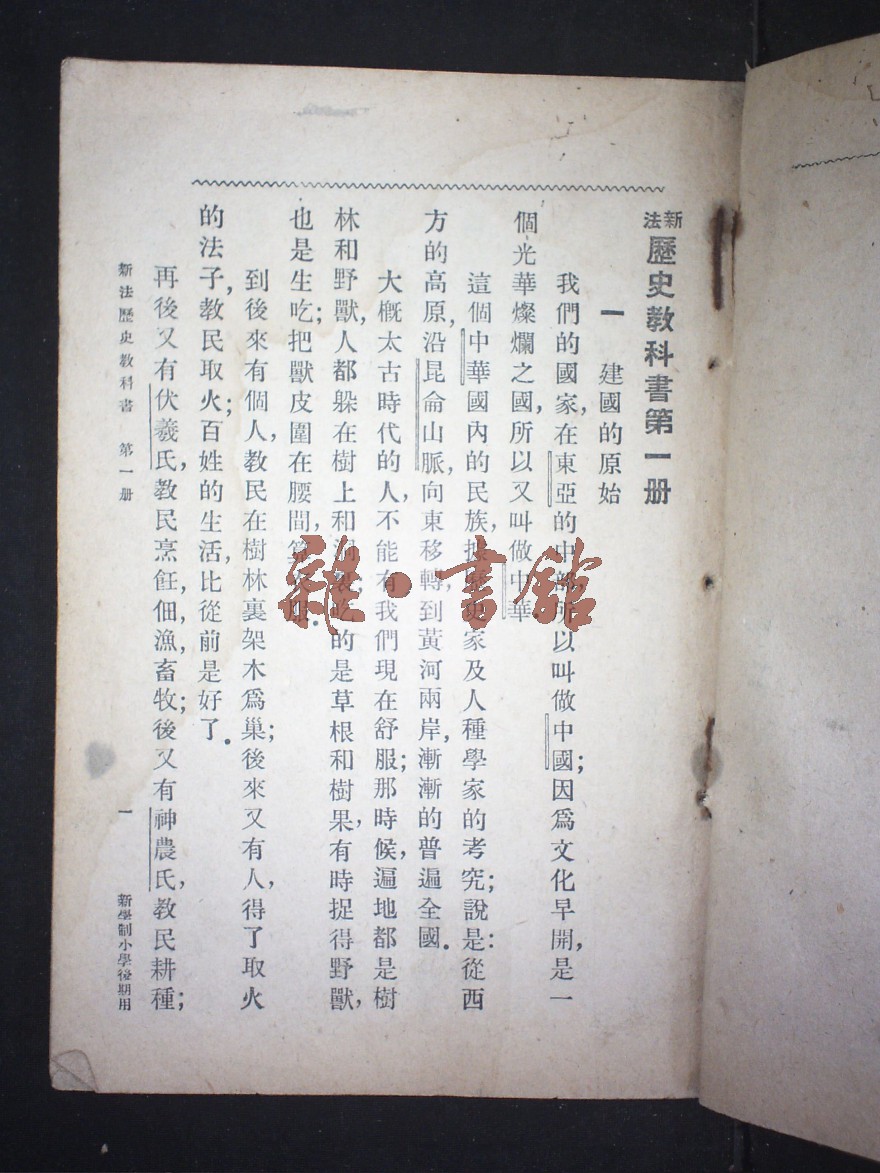 新法歷史教科書第一册
一 建國的原始
我們的國家,在東亞的中部,所以叫做中國;因爲文化早開,是一
個光華燦爛之國,所以又叫做中華.
這個中華國內的民族,據歷史家及人種學家的考究;說是:從西
方的高原,沿昆侖山脈,向東移轉,到黃河兩岸,漸漸的普遍全國.
大概太古時代的人,不能有我們現在舒服;那時候,遍地都是樹
林和野獸,人都躲在樹上和洞裏,吃的是草根和樹果,有時捉得野獸,
也是生吃;把獸皮圍在腰間,算衣服.
到後來有個人,教民在樹林裏架木爲巢;後來又有人,得了取火
的法子,教民取火;百姓的生活,比從前是好了.
再後又有伏羲氏,教民烹飪,佃,漁,畜牧;後又有神農氏,教民耕種;
新法歷史教科書 第一册 一 新學制小學後期用
雜·書館